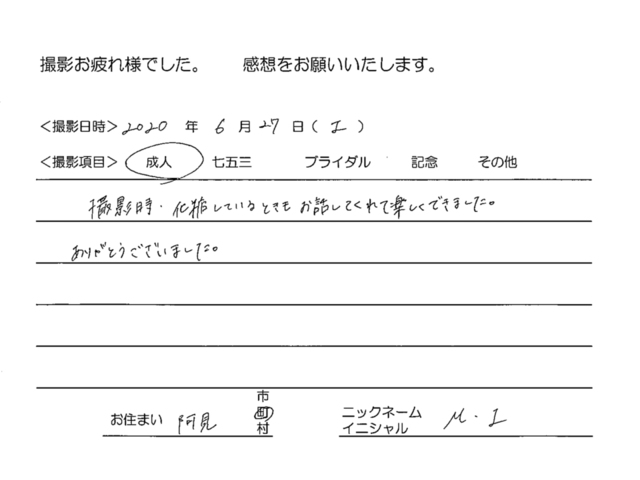 撮影お疲れ様でした。 感想をお願いいたします。
＜撮影日時＞2020 年 6 月 27 日（土）
＜撮影項目＞ 成人 七五三 ブライダル 記念 その他
撮影時・化粧しているときもお話してくれて楽しくできました。
ありがとうございました。
お住まい 阿見 市町村
ニックネーム イニシャル M・I